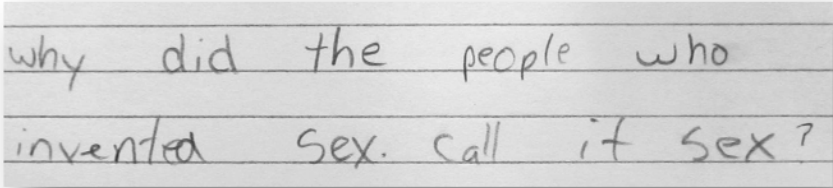 why did the people who
invented sex. call it sex?